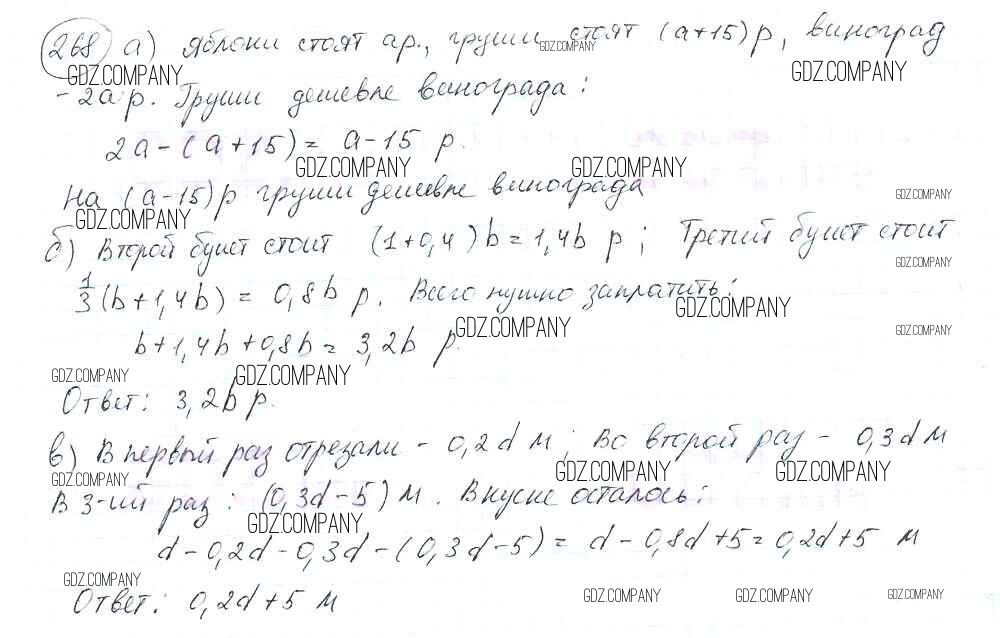 268 а) Яблоки стоят а р., груши стоят (а+15) р, виноград
GDZ.COMPANY
GDZ.COMPANY GDZ.COMPANY
- 2а р. Груши дешевле винограда:
2а - (а + 15) = а - 15 р.
GDZ.COMPANY GDZ.COMPANY
На (а-15) р груши дешевле винограда
GDZ.COMPANY
GDZ.COMPANY
б) Второй букет стоит (1+0,4)b = 1,4b р; Третий букет стоит
GDZ.COMPANY
1/3 (b + 1,4b) = 0,8b р. Всего нужно заплатить:
GDZ.COMPANY
GDZ.COMPANY GDZ.COMPANY
b + 1,4b + 0,8b = 3,2b р.
GDZ.COMPANY GDZ.COMPANY
Ответ: 3,2b р.
в) В первый раз отрезали - 0,2d м; Во второй раз - 0,3d м
GDZ.COMPANY GDZ.COMPANY GDZ.COMPANY
В 3-ий раз: (0,3d - 5) м. В куске осталось:
GDZ.COMPANY
d - 0,2d - 0,3d - (0,3d - 5) = d - 0,8d + 5 = 0,2d + 5 м
GDZ.COMPANY
Ответ: 0,2d + 5 м
GDZ.COMPANY GDZ.COMPANY GDZ.COMPANY